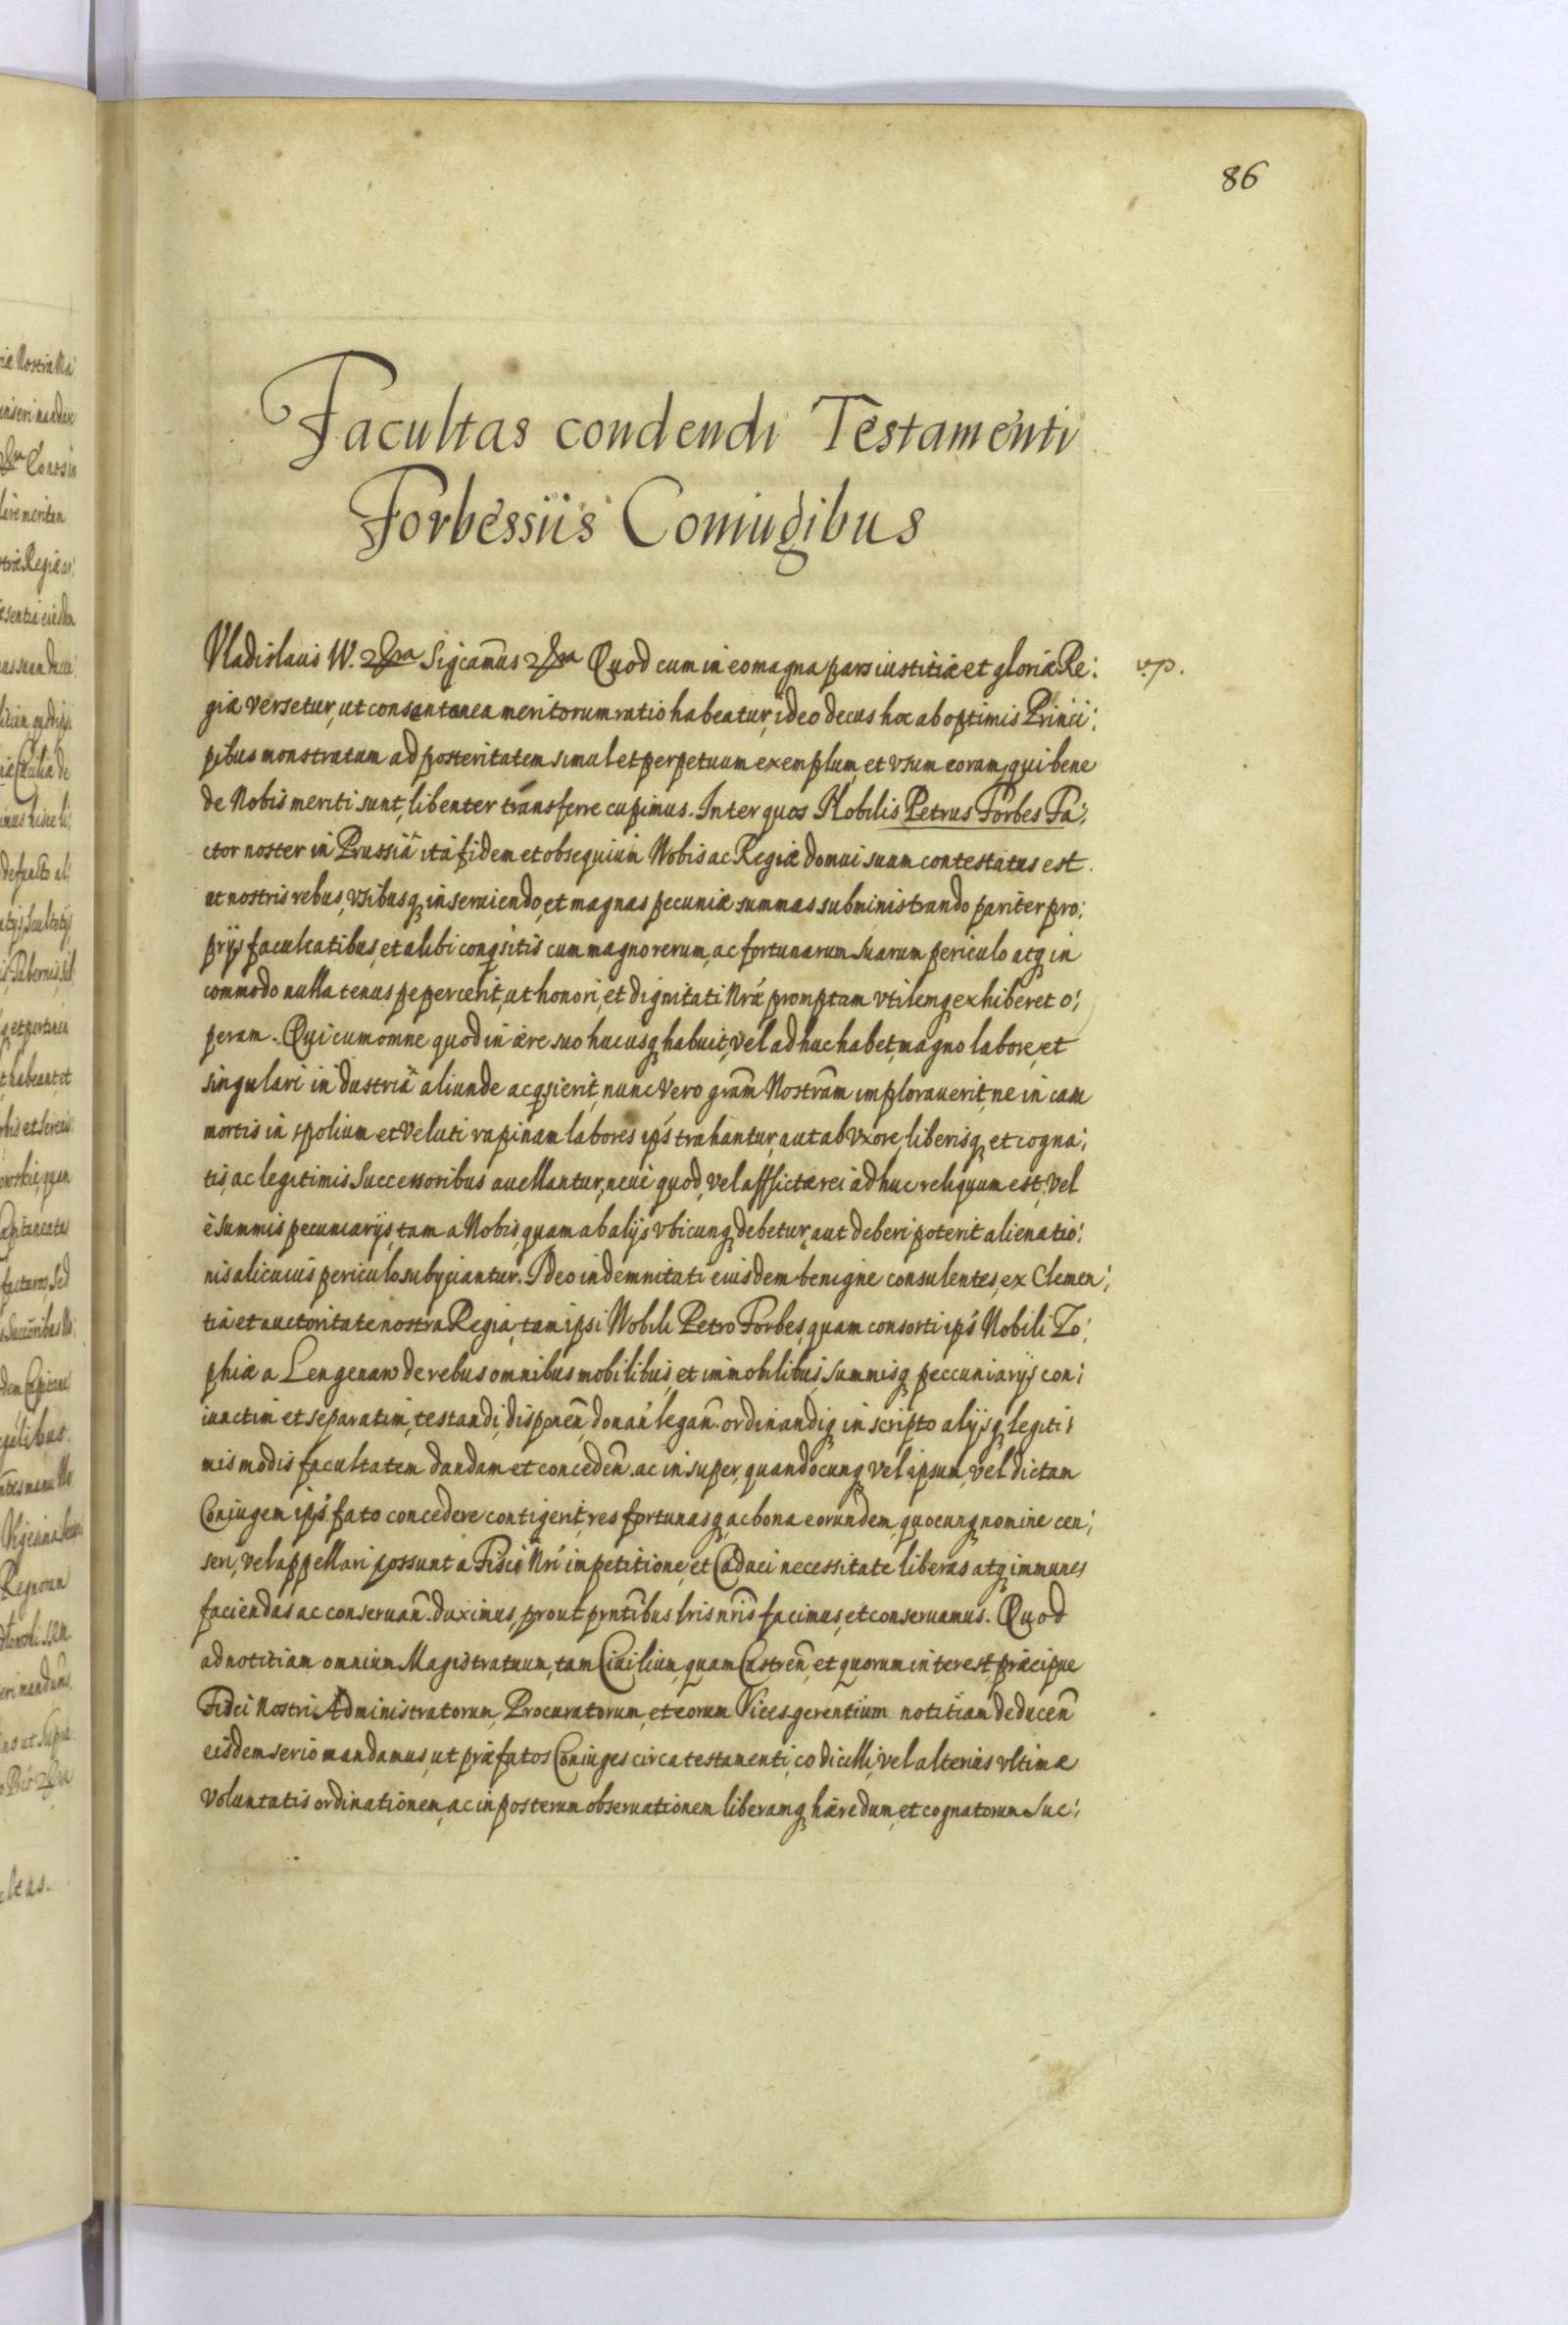 86
Facultas condendi Testamenti
Forbessiis Coniugibus
Vladislaus W. Sigcamus Quod cum in eo magna pars iustitiæ et gloriæ Re:
v.p.
giæ versetur, ut consentanea meritorum ratio habeatur, ideo decus hoc ab optimis Princi:
pibus monstratum ad posteritatem simul et perpetuum exemplum, et vsum eorum, qui bene
de Nobis meriti sunt, libenter transferre cupimus. Inter quos Nobilis Petrus Forbes Fa:
ctor noster in Prussiâ ita fidem et obsequium Nobis ac Regiæ domui suam contestatus est
ut nostris rebus, vsibusq. inseruiendo, et magnas pecuniæ summas subministrando pariter pro:
prijs facultatibus, et alibi conqsitis cum magno rerum, ac fortunarum suarum periculo atq. in
commodo nulla tenus pepercerit, ut honori, et dignitati Nræ promptam vtilemq. exhiberet o:
peram. Qui cum omne quod in ære suo hucusq. habuit, vel adhuc habet, magno labore, et
singulari industriâ aliunde acqsierit, nunc vero gram Nostram implorauerit, ne in casu
mortis in spolium et veluti rapinam labores ips trahantur, aut ab Vxore, liberisq. et cogna:
tis, ac legitimis Successoribus auellantur, neue quod, vel afflictæ rei adhuc reliquum est, vel
è summis pecuniarijs, tam a Nobis, quam ab alijs vbicunq. debetur, aut deberi poterit alienatio:
nis alicuius periculo subijciantur. Ideo indemnitati eiusdem benigne consulentes, ex Clemen:
tia et auctoritate nostra Regia, tam ipsi Nobili Petro Forbes, quam consorti ips Nobili Zo:
phiæ a Lengenaw de rebus omnibus mobilibus, et immobilibus, summisq. peccuniarijs con:
iunctim et separatim, testandi, disponen, donan legan. ordinandiq. in scripto alijsq. legiti:
mis modis facultatem dandam et conceden. ac insuper, quandocunq. vel ipsum, vel dictam
Coniugem ips fato concedere contigerit, res fortunasq. ac bona eorundem, quocunq. nomine cen:
seri, vel appellari possunt a Fisci Nri impetitione, et Caduci necessitate liberas atq. immunes
faciendas ac conseruan. duximus, prout prntibus lris nris facimus, et conseruamus. Quod
ad notitiam omnium Magistratuum, tam Ciuilium, quam Castren et quorum interest, præcipue
Fisci Nostri Administratorum, Procuratorum, et eorum Vices gerentium notitiam deducen
eisdem serio mandamus, ut præfatos Coniuges circa testamenti, codicilli, vel alterius vltimæ
voluntatis ordinationem, ac in posterum obseruationem liberamq. hæredum, et cognatorum Suc: